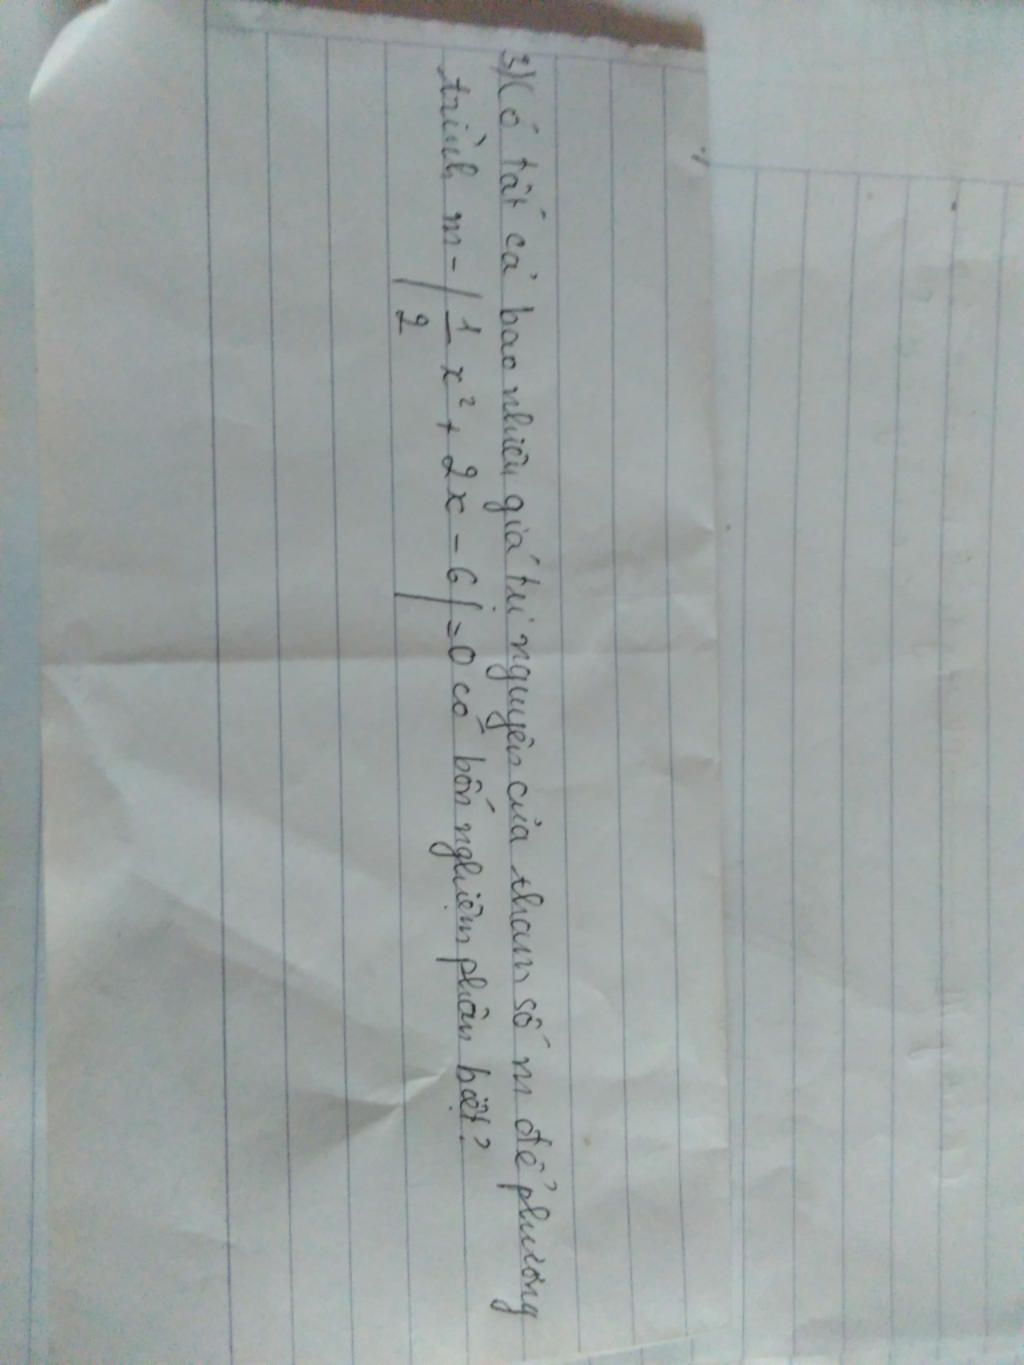 3) Có tất cả bao nhiêu giá trị nguyên của tham số m để phương
trình m - | 1/2 x² + 2x - 6 | = 0 có bốn nghiệm phân biệt?